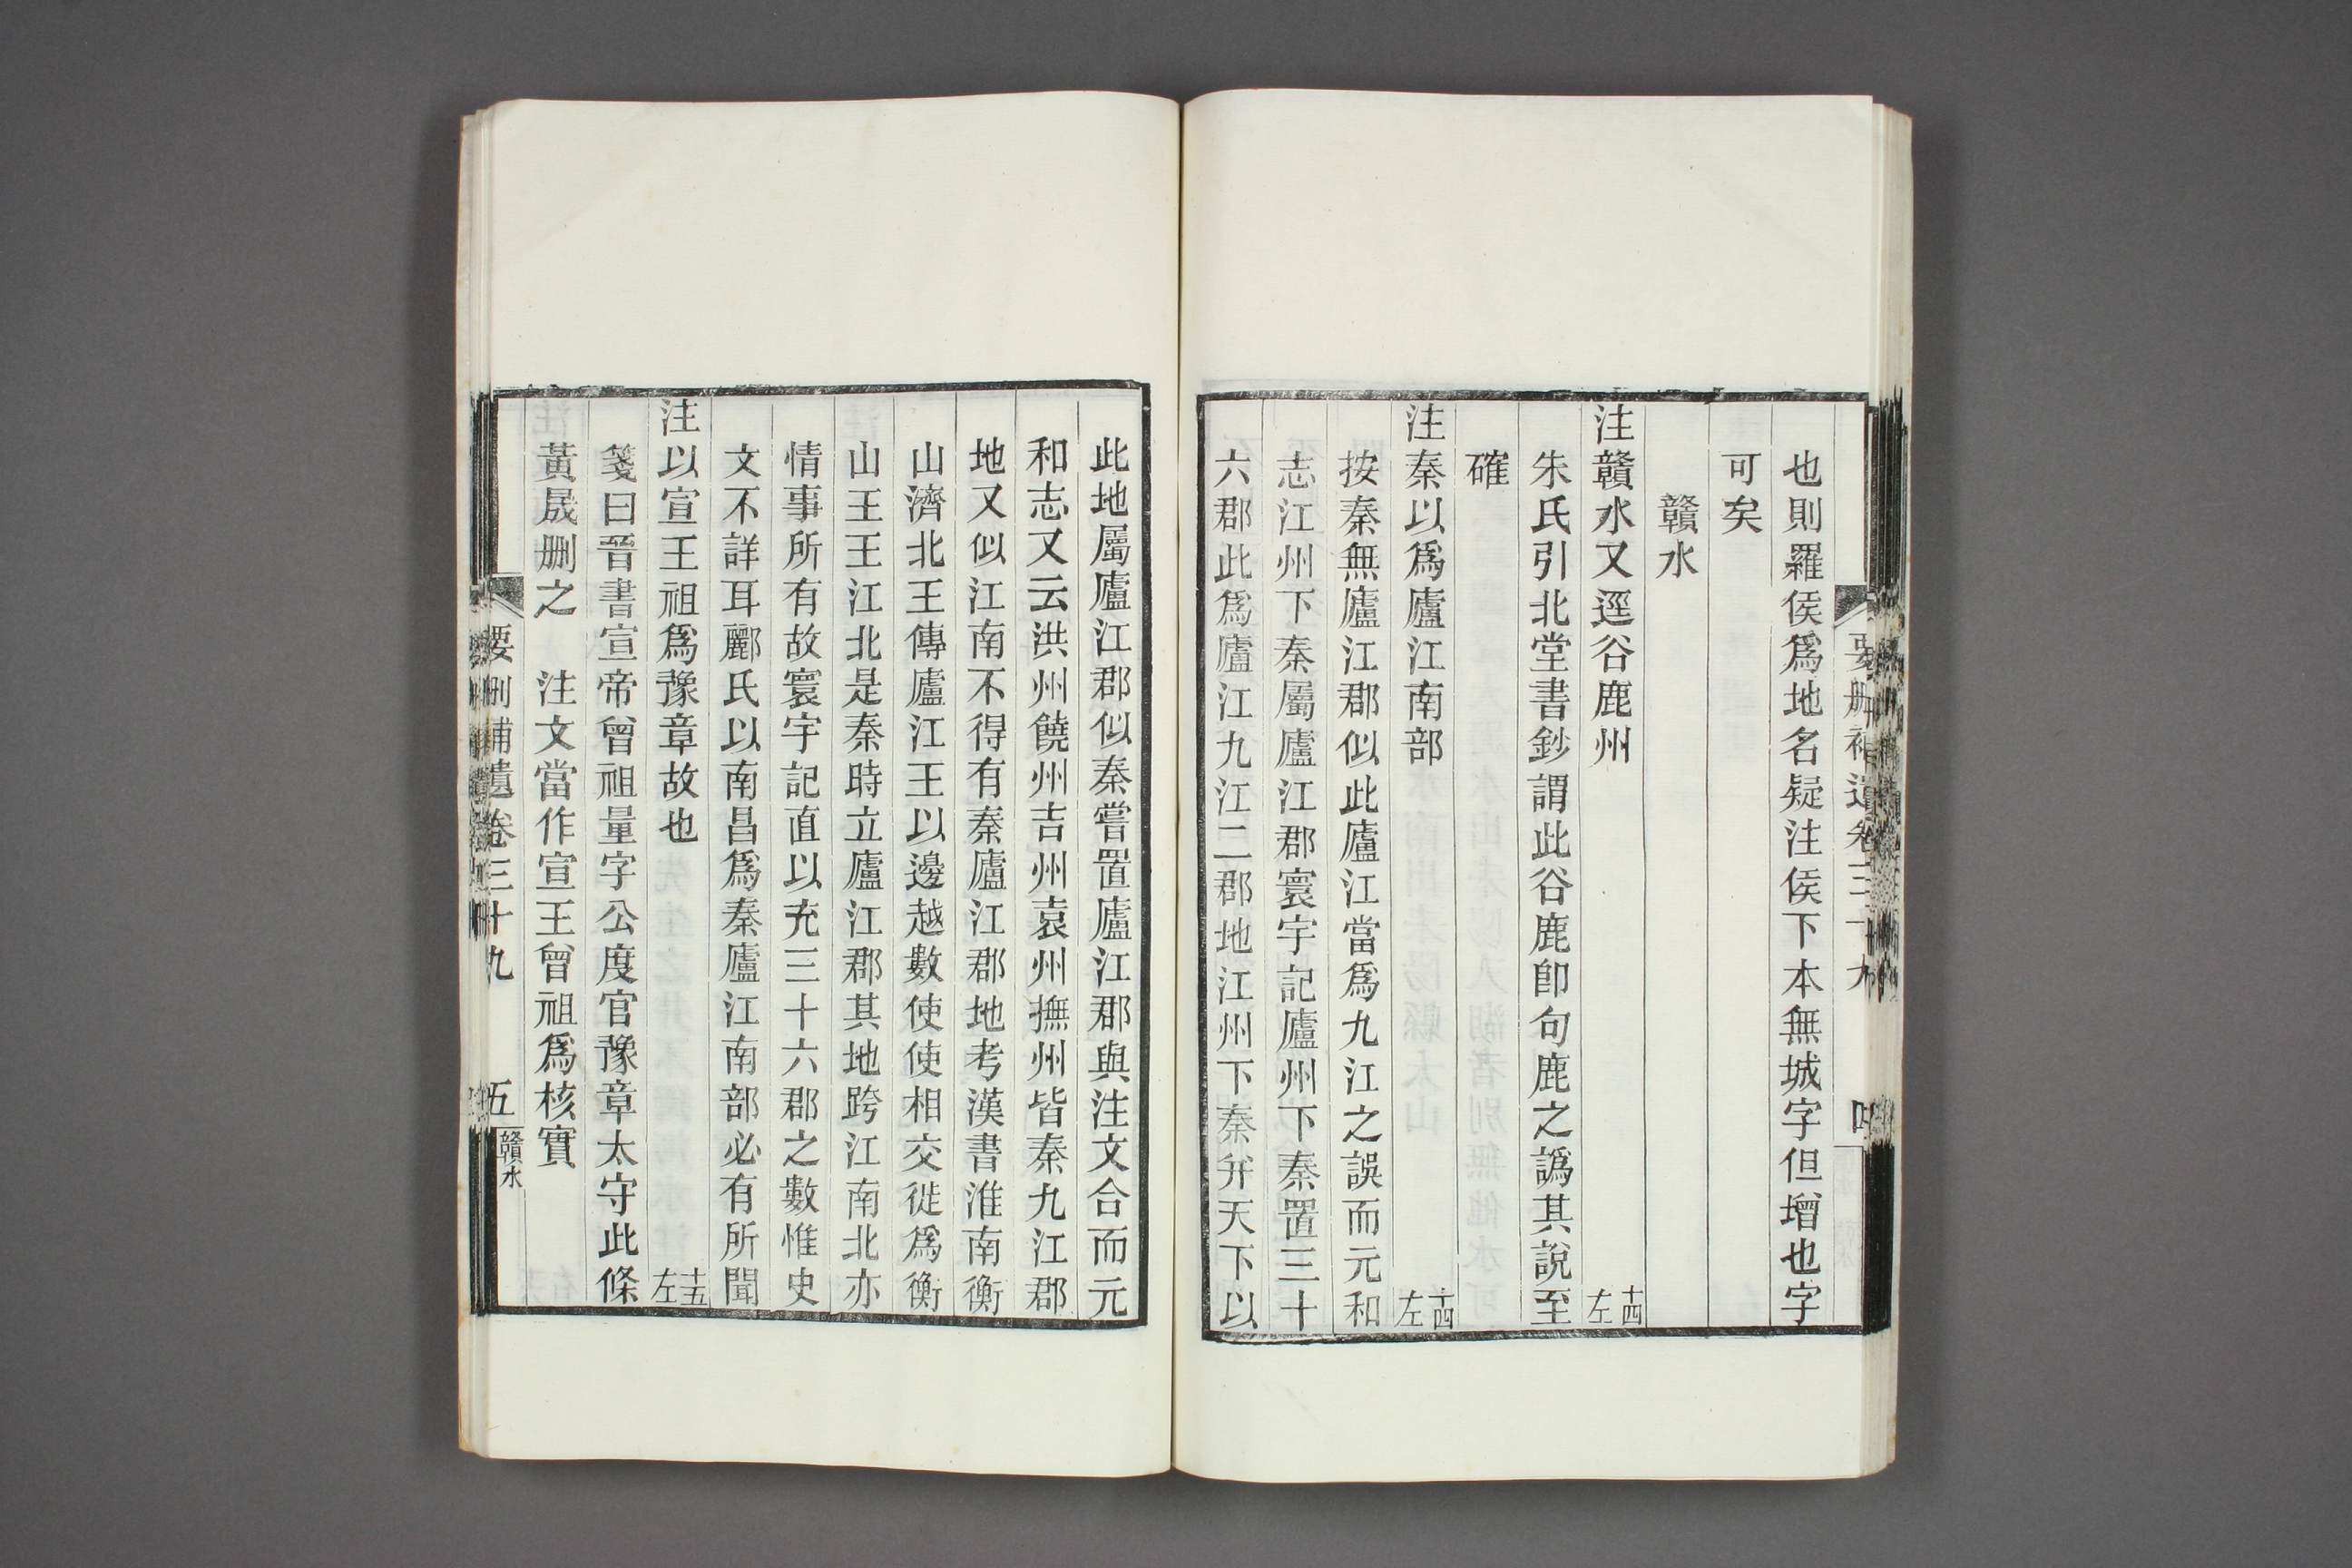 也則羅侯爲地名疑注侯下本無城字但增也字
可矣
贛水
注贛水又逕谷鹿州 十四左
朱氏引北堂書鈔謂此谷鹿卽句鹿之譌其說至
確
注秦以爲廬江南部 十四左
按秦無廬江郡似此廬江當爲九江之誤而元和
志江州下秦屬廬江郡寰宇記廬州下秦置三十
六郡此爲廬江九江二郡地江州下秦幷天下以
此地屬廬江郡似秦嘗置廬江郡與注文合而元
和志又云洪州饒州吉州袁州撫州皆秦九江郡
地又似江南不得有秦廬江郡地考漢書淮南衡
山濟北王傳廬江王以邊越數使使相交徙爲衡
山王王江北是秦時立廬江郡其地跨江南北亦
情事所有故寰宇記直以充三十六郡之數惟史
文不詳耳酈氏以南昌爲秦廬江南部必有所聞
注以宣王祖爲豫章故也 十五左
箋曰晉書宣帝曾祖量字公度官豫章太守此條
黃晟刪之 注文當作宣王曾祖爲核實
要刪補遺卷三十九 五 贛水